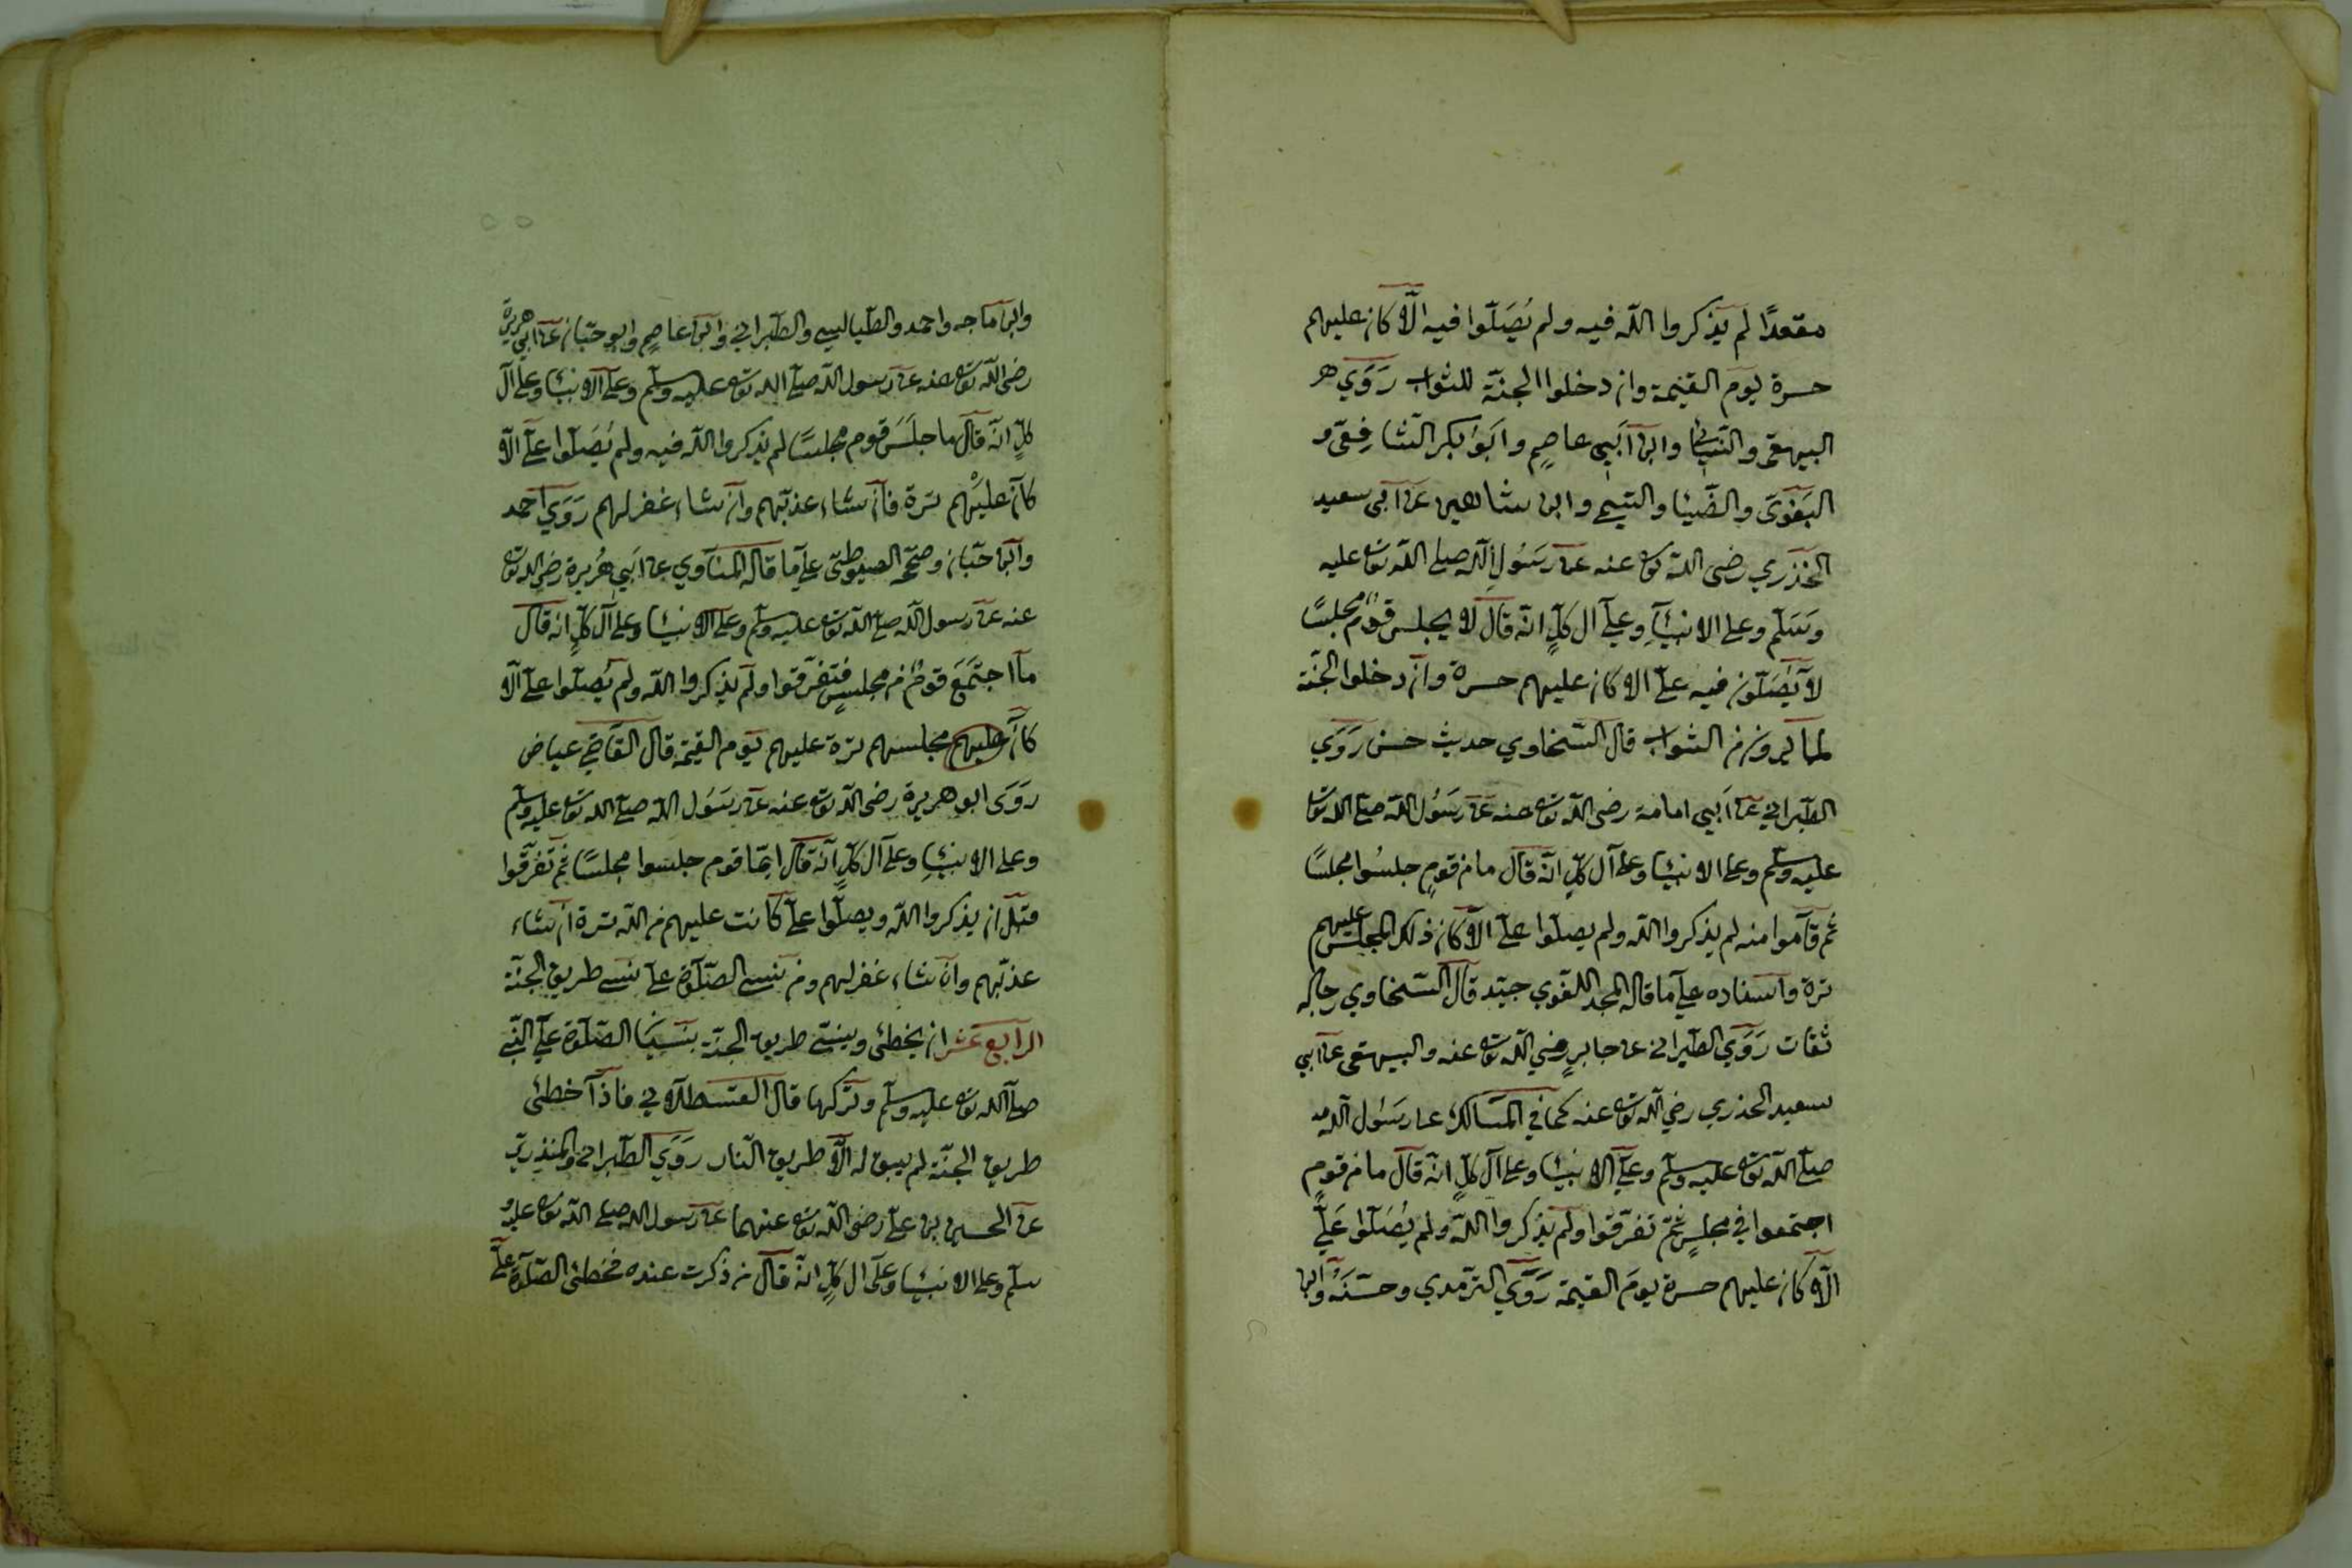 مقعدًا لم يذكروا الله فيه ولم يُصَلّوا فيه الّا كان عليهم
حسرة يوم القيمة وان دخلوا الجنّة للثواب رَوَي هر
البيهقى والنّسائى وابن ابي عاصم وابو بكر الشافعى و
البغوى والضّيا والتيمي وابن شاهين عن ابى سعيد
الخذري رضى الله تعا عنه عن رسول الله صلى الله تعا عليه
وسلّم وعلى الانبيآء وعلي آل كلٍّ انّه قال لا يجلس قومٌ مجلسًا
لا يُصَلّون فيه علىّ الا كان عليهم حسرة وان دخلوا الجنّة
لما يرون من الثواب قال السّخاوي حديث حسن رَوَي
الطّبراني عن ابي امامة رضى الله تعا عنه عن رَسُول الله صلى الله تعا
عليه وسلّم وعلى الانبيا وعلى آل كلٍّ انّه قال ما من قوم جلسُوا مجلسًا
ثم قاموا منه لم يذكروا الله ولم يصلوا علىّ الّا كان ذلك المجلس عليهم
ترة واسناده على ما قاله المجد اللغوي جيّد قال السّخاوي رجاله
ثقات رَوَي الطّبرانى عن جابر رضي الله تعا عنه والبيهقى عن ابي
سعيد الخذري رضي الله تعا عنه كما في المسالك عن رسُول الله
صلى الله تعا عليه وسلّم وعلي الانبيا وعلى آل كلٍّ انّه قال ما من قومٍ
اجتمعوا في مجلسٍ ثمّ تفرّقوا ولم يذكروا الله ولم يُصَلّوا عَليَّ
الّا كان عليهم حسرة يومَ القيمة رَوَي الترمدي وحسّنَهُ وابن
وابن ماجه واحمد والطّيالسي والطّبراني وابن عاصم وابو حبّان عن ابي هريرة
رضى الله تعا عنه عن رسول الله صلى الله تعا عليه وسلّم وعلى الانبيا وعلى آل
كلٍّ انّه قال ما جلَسَ قوم مجلسًا لم يذكروا الله فيه ولم يُصَلّوا علىّ الّا
كان عليْهم ترة فان شاء عذّبهم وان شاء غفر لهم رَوَي احمد
وابن حبّان وصحّحه الصيوطىّ على ما قاله المناوي عن ابي هُريرة رضي الله تعا
عنه عن رسول الله صلى الله تعا عليه وسلّم وعلى الانبيا وعلى آل كلٍّ انه قال
ما اجتَمَعَ قومٌ من مجلسٍ فتفرّقوا ولم يذكروا الله ولم يُصلّوا علىّ الّا
كان عليهم مجلسهم ترة عليهم يوم القيمة قال القاضي عياض
رَوَى ابو هريرة رضى الله تعا عنه عن رسَول الله صلى الله تعا عليه وسلّم
وعلى الانبيا وعلى آل كلٍّ انّه قال ايّما قوم جلسوا مجلسًا ثم تفرّقوا
قبل ان يذكروا الله ويصلّوا علىّ كانت عليهم من الله ترة ان شاء
عذّبهم وان شاء غفر لهم ومن نسي الصّلوة علىّ نسي طريق الجنّة
الرابع عشر ان يخطئ وينسى طريق الجنّة بنسيا الصّلوة علي النّبي
صلى الله تعا عليه وسلّم وتركها قال القسطلاني فاذا خطئ
طريق الجنّة لم يبق له الّا طريق النّار رَوَي الطّبرانى والمنذريّ
عن الحسين بن علىّ رضى الله تعا عنهما عن رسول الله صلى الله تعا عليه و
سلّم وعلى الانبيا وعلى آل كلٍّ انّه قال من ذكرت عنده فخطئ الصّلوة علىّ